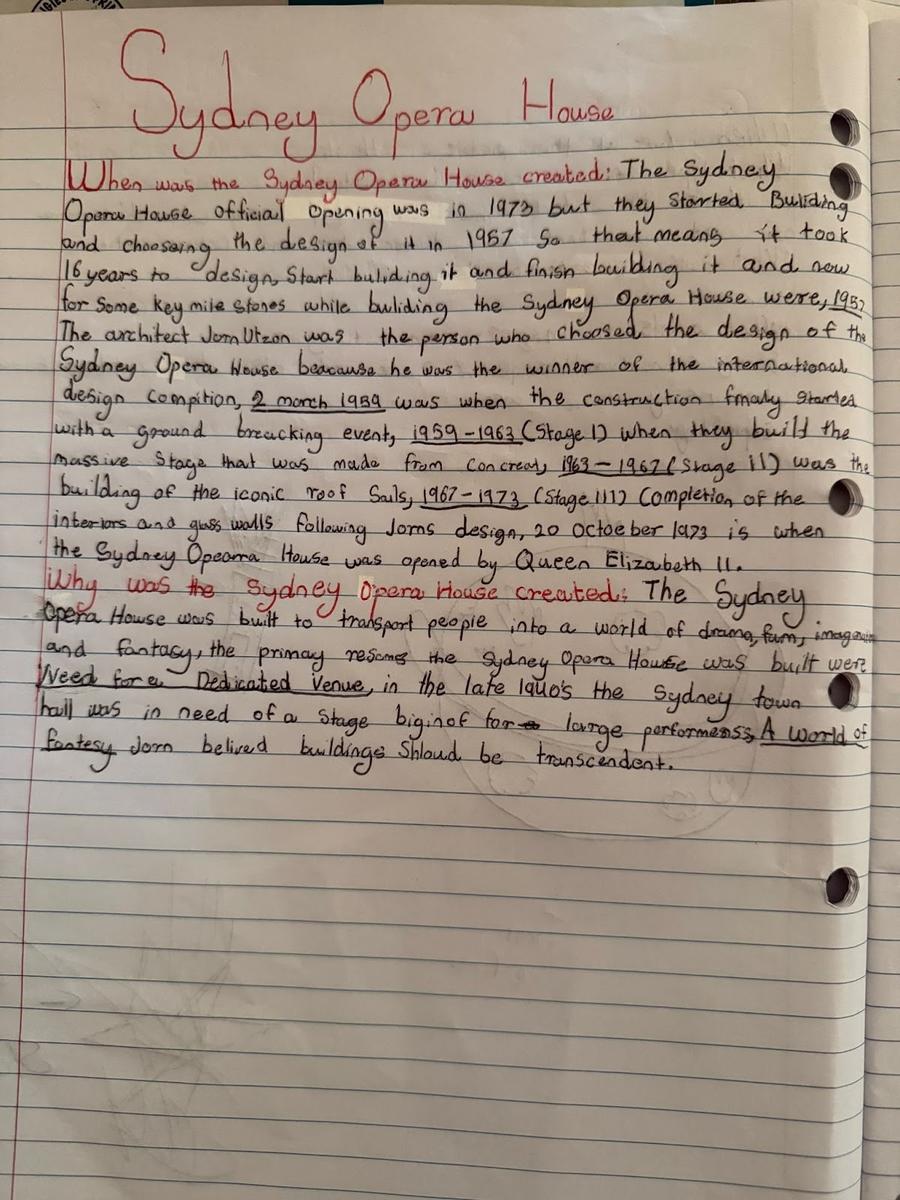 Sydney Opera House
When was the Sydney Opera House created: The Sydney
Opera House official opening was in 1973 but they Starrted Buliding
and choosaing the design of it in 1957 So that means it took
16 years to design, Start buliding it and finish building it and now
for some key mile stones while buliding the Sydney Opera House were, 1957
The architect Jorn Utzon was the person who choosed the design of the
Sydney Opera House beacause he was the winner of the international
design Compition, 2 march 1959 was when the construction fmaly started
with a ground breacking event, 1959-1963 (Stage I) when they build the
massive Stage that was made from Concreat, 1963-1967 (Stage II) was the
building of the iconic roof Sails, 1967-1973 (Stage III) Completion of the
interiors and glass walls following Jorns design, 20 Octoeber 1973 is when
the Sydney Opearra House was opened by Queen Elizabeth II.
Why was the Sydney Opera House created: The Sydney
Opera House was built to transport people into a world of drama, fam,
and fantasy, the primary the Sydney Opera House was built were
Need for a Dedicated Venue, in the late 1940's the Sydney town
hall was in need of a Stage biginof for large performenss, A world of
fantesy Jorn belived buildings Shloud be transcendent.